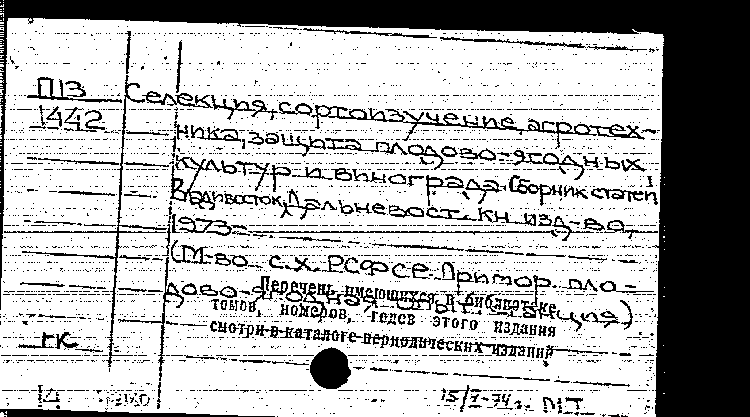 П13
1442
Селекция, сортоизучение, агротех-
ника, защита плодово-ягодных
культур и винограда. Сборник статей
Владивосток, Дальневост. кн. изд-во,
1973-
(М-во с.х. РСФСР. Примор. пло-
дово-ягодная опыт. станция)
Перечень имеющихся в библиотеке
томов, номеров, годов этого издания
смотри в каталоге периодических изданий
гк
14
15/I-74 г. МТ